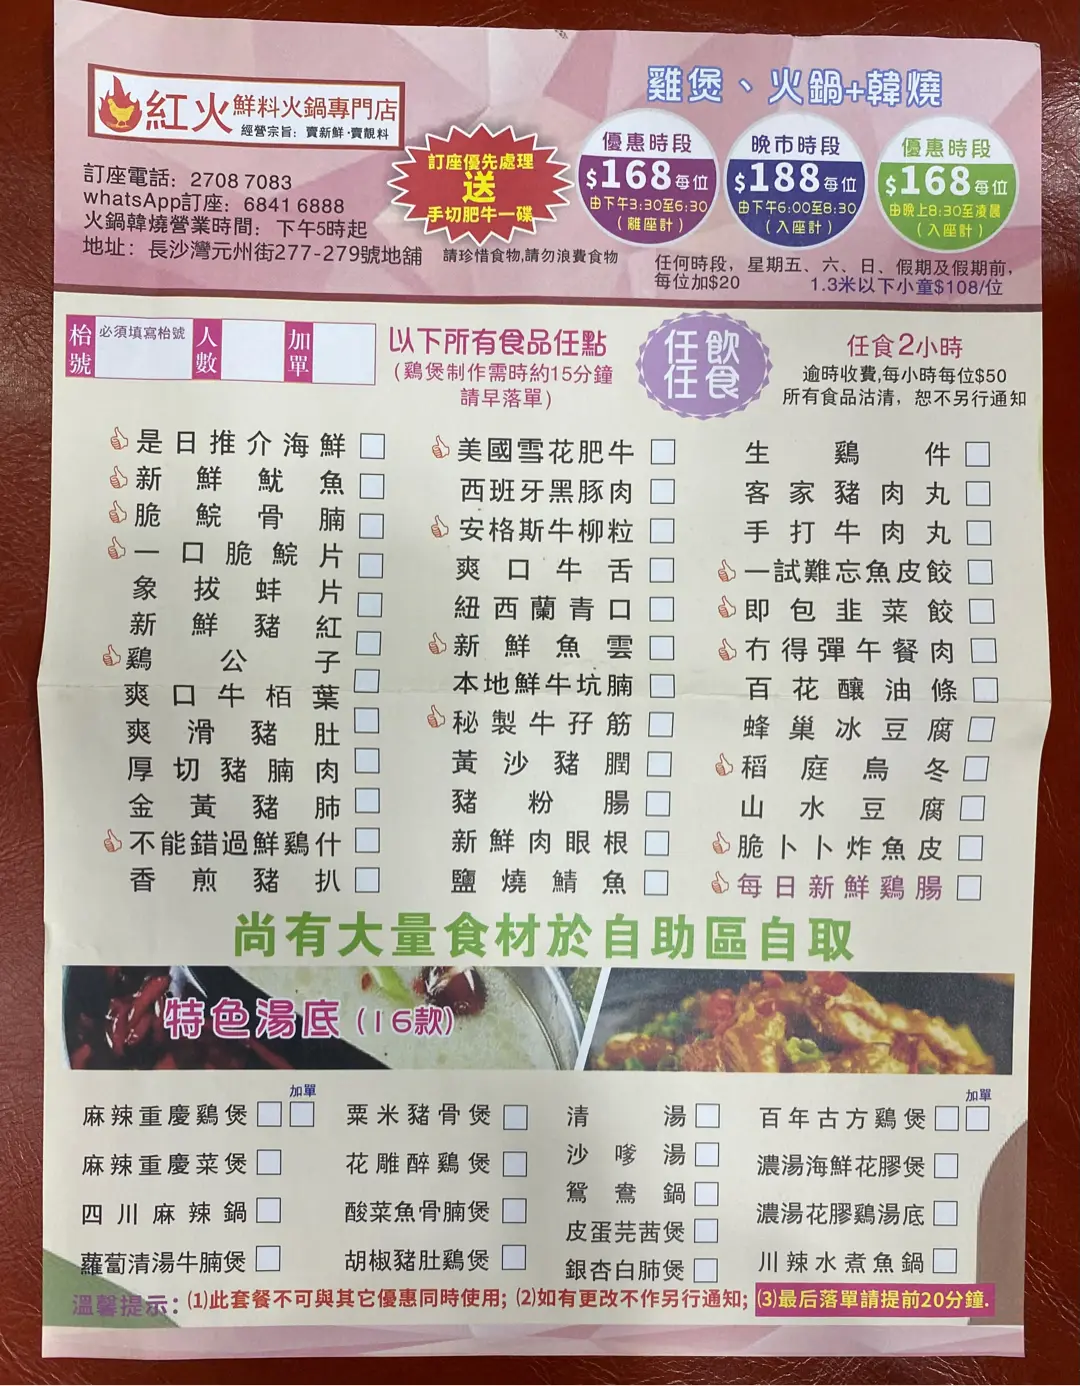 紅火鮮料火鍋專門店
經營宗旨：賣新鮮·賣靚料
訂座電話：2708 7083
whatsApp訂座：6841 6888
火鍋韓燒營業時間：下午5時起
地址：長沙灣元州街277-279號地舖
訂座優先處理
送
手切肥牛一碟
請珍惜食物,請勿浪費食物
雞煲、火鍋+韓燒
優惠時段
$168每位
由下午3:30至6:30
(離座計)
晚市時段
$188每位
由下午6:00至8:30
(入座計)
優惠時段
$168每位
由晚上8:30至凌晨
(入座計)
任何時段，星期五、六、日、假期及假期前，
每位加$20 1.3米以下小童$108/位
枱號 必須填寫枱號 人數 加單
以下所有食品任點
(鷄煲制作需時約15分鐘
請早落單)
任飲
任食
任食2小時
逾時收費,每小時每位$50
所有食品沽清，恕不另行通知
是日推介海鮮
新鮮魷魚
脆鯇骨腩
一口脆鯇片
象拔蚌片
新鮮豬紅
鷄公子
爽口牛栢葉
爽滑豬肚
厚切豬腩肉
金黃豬肺
不能錯過鮮鷄什
香煎豬扒
美國雪花肥牛
西班牙黑豚肉
安格斯牛柳粒
爽口牛舌
紐西蘭青口
新鮮魚雲
本地鮮牛坑腩
秘製牛孖筋
黃沙豬膶
豬粉腸
新鮮肉眼根
鹽燒鯖魚
生鷄件
客家豬肉丸
手打牛肉丸
一試難忘魚皮餃
即包韭菜餃
冇得彈午餐肉
百花釀油條
蜂巢冰豆腐
稻庭烏冬
山水豆腐
脆卜卜炸魚皮
每日新鮮鷄腸
尚有大量食材於自助區自取
特色湯底(16款)
加單
麻辣重慶鷄煲
麻辣重慶菜煲
四川麻辣鍋
蘿蔔清湯牛腩煲
粟米豬骨煲
花雕醉鷄煲
酸菜魚骨腩煲
胡椒豬肚鷄煲
清湯
沙嗲湯
鴛鴦鍋
皮蛋芫茜煲
銀杏白肺煲
加單
百年古方鷄煲
濃湯海鮮花膠煲
濃湯花膠鷄湯底
川辣水煮魚鍋
溫馨提示：(1)此套餐不可與其它優惠同時使用；(2)如有更改不作另行通知；(3)最后落單請提前20分鐘.